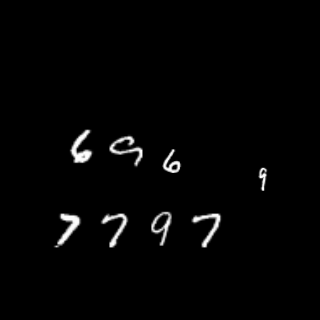 696 9
7797